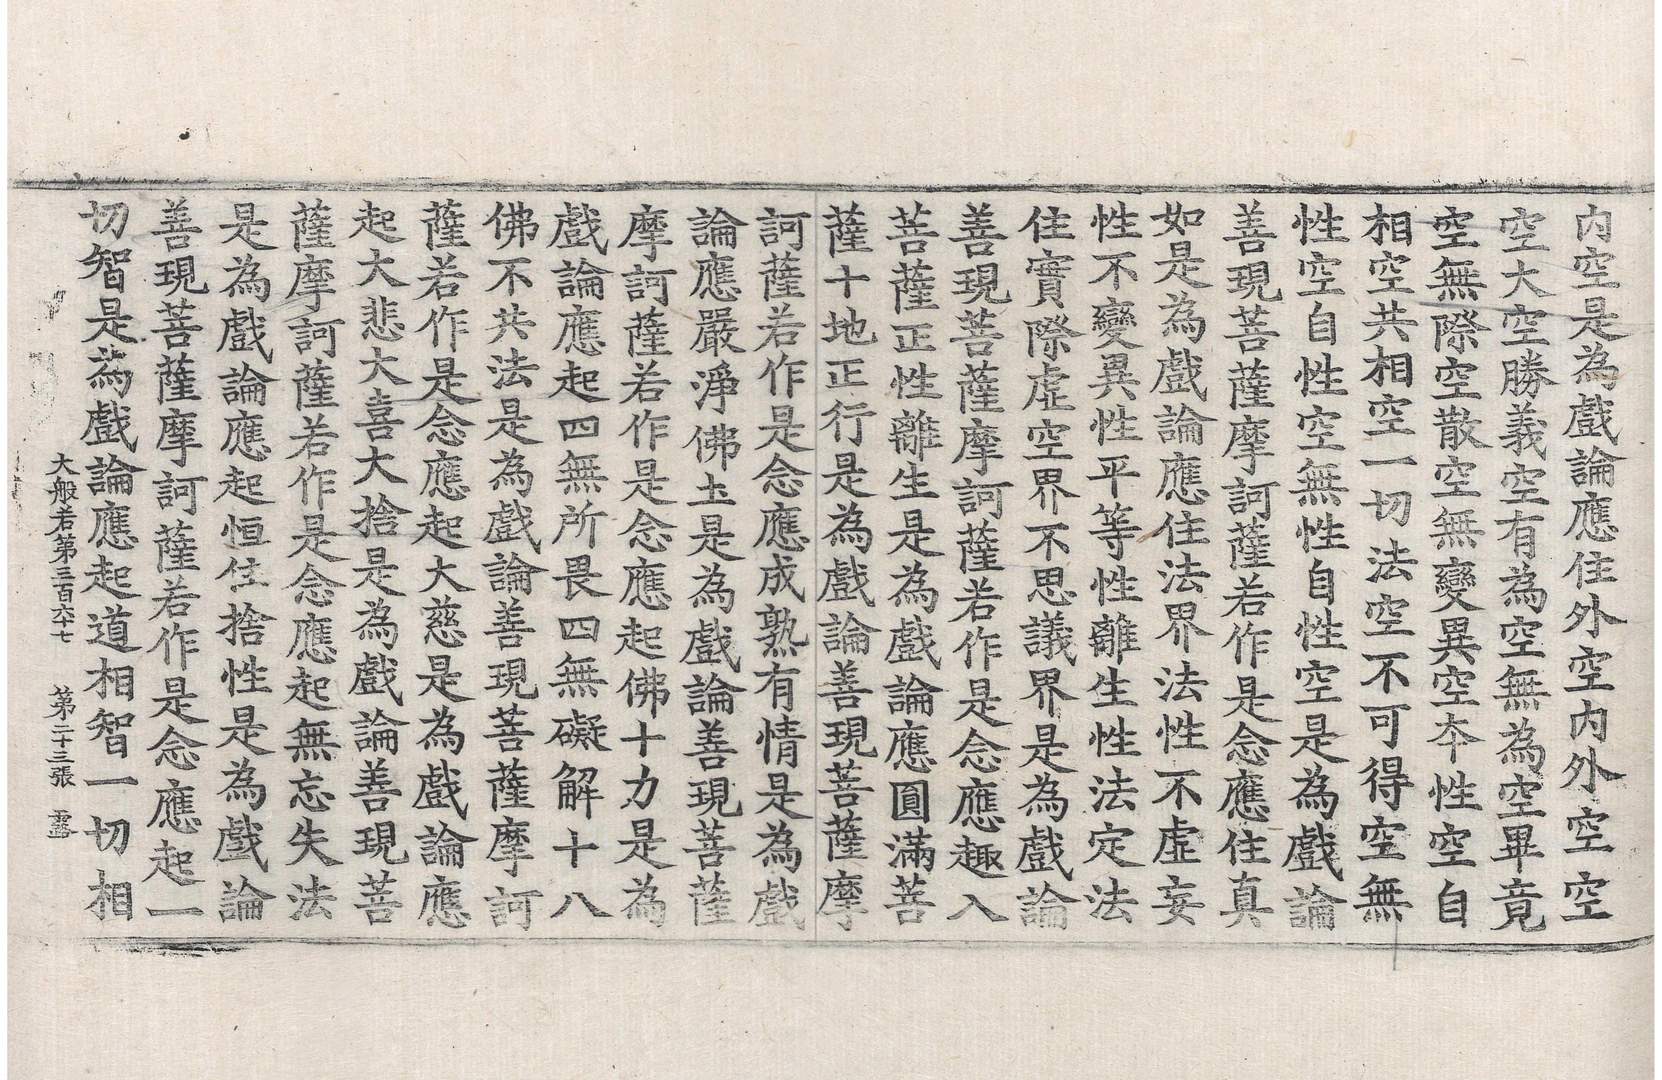 内空是為戲論應住外空内外空空
空大空勝義空有為空無為空畢竟
空無際空散空無變異空本性空自
相空共相空一切法空不可得空無
性空自性空無性自性空是為戲論
善現菩薩摩訶薩若作是念應住真
如是為戲論應住法界法性不虛妄
性不變異性平等性離生性法定法
住實際虛空界不思議界是為戲論
善現菩薩摩訶薩若作是念應趣入
菩薩正性離生是為戲論應圓滿菩
薩十地正行是為戲論善現菩薩摩
訶薩若作是念應成熟有情是為戲
論應嚴淨佛土是為戲論善現菩薩
摩訶薩若作是念應起佛十力是為
戲論應起四無所畏四無礙解十八
佛不共法是為戲論善現菩薩摩訶
薩若作是念應起大慈是為戲論應
起大悲大喜大捨是為戲論善現菩
薩摩訶薩若作是念應起無忘失法
是為戲論應起恒住捨性是為戲論
善現菩薩摩訶薩若作是念應起一
切智是為戲論應起道相智一切相
大般若第三百六十七 第二十三張 露